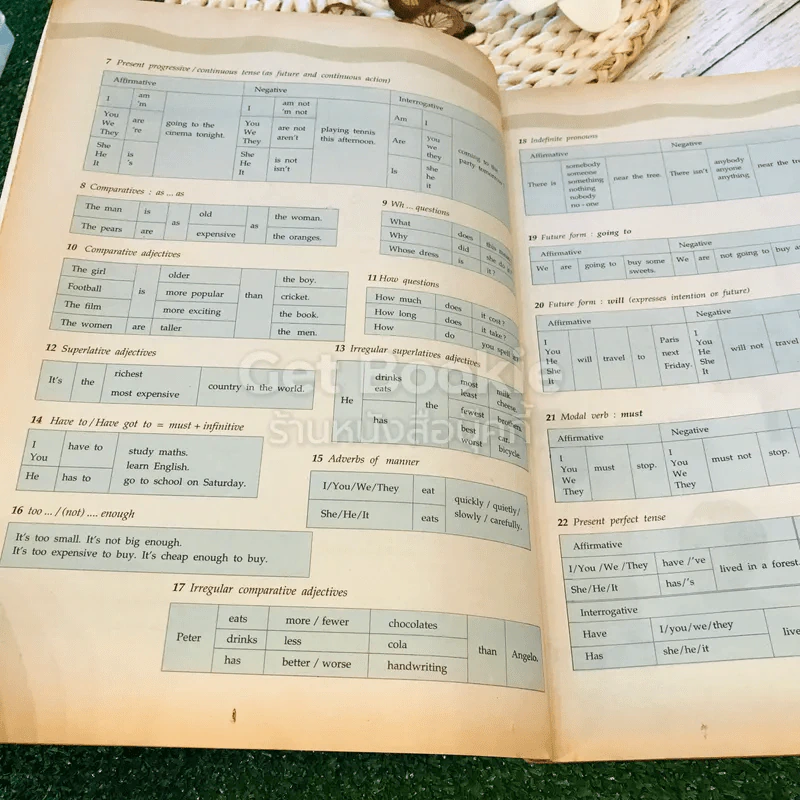 7 Present progressive / continuous tense (as future and continuous action)
Affirmative Negative Interrogative
I am 'm
You We They are 're
She He It is 's
going to the cinema tonight.
I am not 'm not
You We They are not aren't
She He It is not isn't
playing tennis this afternoon.
Am I
Are you we they
Is she he it
coming to the party tomorrow?
8 Comparatives : as ... as
The man is as old as the woman.
The pears are expensive the oranges.
9 Wh ... questions
What does this mean
Why did she do
Whose dress is it ?
10 Comparative adjectives
The girl is older than the boy.
Football more popular cricket.
The film more exciting the book.
The women are taller the men.
11 How questions
How much does it cost ?
How long does it take ?
How do you spell
12 Superlative adjectives
It's the richest country in the world.
most expensive
13 Irregular superlatives adjectives
He drinks the most milk.
eats least cheese.
has fewest brothers.
best car.
worst bicycle.
14 Have to / Have got to = must + infinitive
I have to study maths.
You learn English.
He has to go to school on Saturday.
15 Adverbs of manner
I/You/We/They eat quickly / quietly/
She/He/It eats slowly / carefully.
16 too ... / (not) .... enough
It's too small. It's not big enough.
It's too expensive to buy. It's cheap enough to buy.
17 Irregular comparative adjectives
Peter eats more / fewer chocolates than Angelo.
drinks less cola
has better / worse handwriting
18 Indefinite pronouns
Affirmative Negative
There is somebody someone something nothing nobody no - one near the tree.
There isn't anybody anyone anything near the
19 Future form : going to
Affirmative Negative
We are going to buy some sweets. We are not going to buy
20 Future form : will (expresses intention or future)
Affirmative Negative
I You He She It will travel to Paris next Friday.
I You He She It will not travel
21 Modal verb : must
Affirmative Negative
I You We They must stop.
I You We They must not stop.
22 Present perfect tense
Affirmative
I/You /We /They have /'ve lived in a forest.
She/He/It has/'s
Interrogative
Have I/you/we/they
Has she/he/it
Get Bookie
ร้านหนังสือบุคกี้